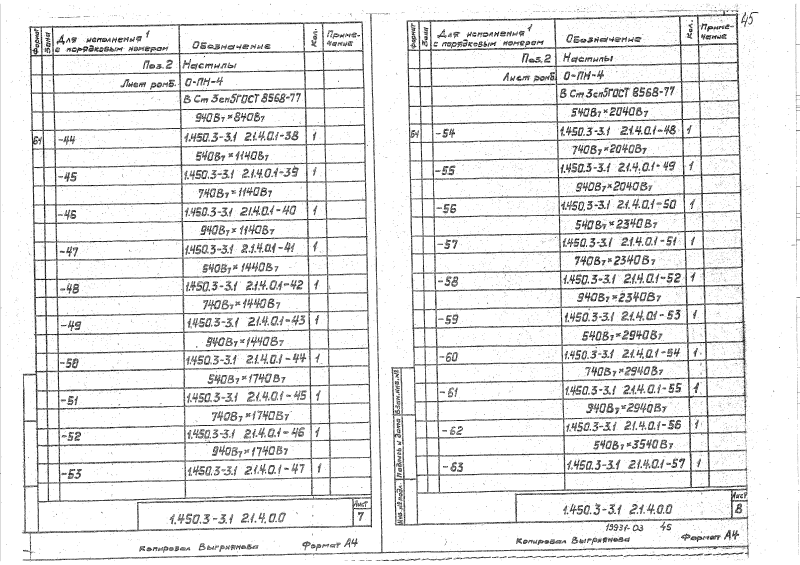 45
Формат
Зона
Для исполнения 1
с порядковым номером
Обозначение
Кол.
Приме-
чание
Поз.2 Настилы
Лист ромб. О-ПН-4
В Ст 3сп5 ГОСТ 8568-77
940В7×840В7
Б1 -44 1.450.3-3.1 2.1.4.0.1-38 1
540В7×1140В7
-45 1.450.3-3.1 2.1.4.0.1-39 1
740В7×1140В7
-46 1.450.3-3.1 2.1.4.0.1-40 1
940В7×1140В7
-47 1.450.3-3.1 2.1.4.0.1-41 1
540В7×1440В7
-48 1.450.3-3.1 2.1.4.0.1-42 1
740В7×1440В7
-49 1.450.3-3.1 2.1.4.0.1-43 1
940В7×1440В7
-50 1.450.3-3.1 2.1.4.0.1-44 1
540В7×1740В7
-51 1.450.3-3.1 2.1.4.0.1-45 1
740В7×1740В7
-52 1.450.3-3.1 2.1.4.0.1-46 1
940В7×1740В7
-53 1.450.3-3.1 2.1.4.0.1-47 1
1.450.3-3.1 2.1.4.0.0
Лист
7
Копировал Выгриянова Формат А4
Формат
Зона
Для исполнения 1
с порядковым номером
Обозначение
Кол.
Приме-
чание
Поз.2 Настилы
Лист ромб. О-ПН-4
В Ст 3сп5 ГОСТ 8568-77
540В7×2040В7
Б1 -54 1.450.3-3.1 2.1.4.0.1-48 1
740В7×2040В7
-55 1.450.3-3.1 2.1.4.0.1-49 1
940В7×2040В7
-56 1.450.3-3.1 2.1.4.0.1-50 1
540В7×2340В7
-57 1.450.3-3.1 2.1.4.0.1-51 1
740В7×2340В7
-58 1.450.3-3.1 2.1.4.0.1-52 1
940В7×2340В7
-59 1.450.3-3.1 2.1.4.0.1-53 1
540В7×2940В7
-60 1.450.3-3.1 2.1.4.0.1-54 1
740В7×2940В7
-61 1.450.3-3.1 2.1.4.0.1-55 1
940В7×2940В7
-62 1.450.3-3.1 2.1.4.0.1-56 1
540В7×3540В7
-63 1.450.3-3.1 2.1.4.0.1-57 1
Взам.инв.№
Подпись и дата
Инв.№ подл.
1.450.3-3.1 2.1.4.0.0
Лист
8
19931-03 45
Копировал Выгриянова Формат А4